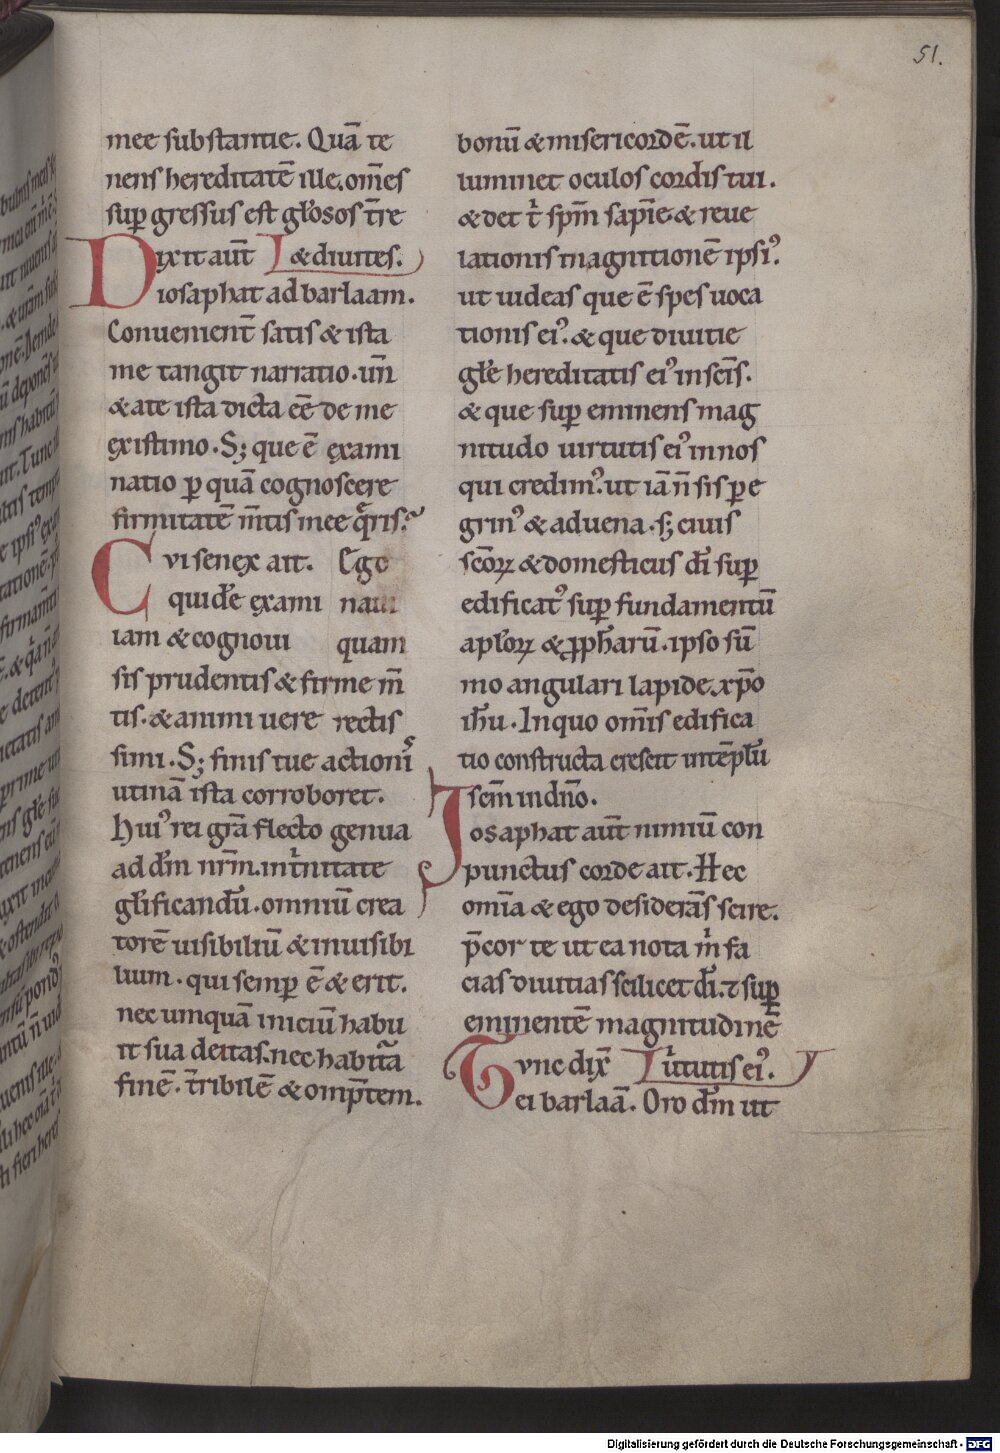 51.
mee substantie. Quā te
nens hereditatē ille. om̄es
sup gressus est gl̄osos t̄re
Dixit aūt & diuites.
Iosaphat ad barlaam.
Conuenient̄ satis & ista
me tangit narratio. un̄
& a te ista dicta eē de me
existimo. S; que ē exami
natio p quā cognoscere
firmitatē m̄tis mee q̄ris?
Cvi senex ait. Ego
quid̄e exami naui
iam & cognoui quam
sis prudentis & firme m̄
tis. & animi uere rectis
simi. S; finis tue actioni᷒
utinā ista corroboret.
Hui᷒ rei grā flecto genua
ad dm̄ nrm̄. in t̄nitate
gl̄ificandū. omniū crea
torē uisibiliū & inuisibi
lium. qui semp ē & erit.
nec umquā iniciū habu
it sua deitas. nec habit̄a
finē. t̄ribilē & omp̄tem.
bonū & misericordē. ut il
luminet oculos cordis tui.
& det t̄ spm̄ sapīe & reue
lationis in agnitionē ipsi᷒.
ut uideas que ē spes uoca
tionis ei᷒. & que diuitie
gl̄e hereditatis ei᷒ in sc̄is.
& que sup eminens mag
nitudo uirtutis ei᷒ in nos
qui credim᷒. ut iā n̄ sis pe
grin᷒ & aduena. s; ciuis
sc̄oꝝ & domesticus dī sup
edificat᷒ sup fundamentū
apl̄oꝝ & pph̄arū. ipso sū
mo angulari lapide xp̄o
ih̄u. In quo om̄is edifica
tio constructa crescit in tēplū
sc̄m in dn̄o.
Iosaphat aūt nimiū con
punctus corde ait. Hec
om̄ia & ego desiderās scire.
p̄cor te ut ea nota m̄ fa
cias diuitias scilicet dī. ⁊ sup
eminentē magnitudinē
Tvnc dix̄ uirtutis ei᷒.
ei barlaā. Oro dm̄ ut
Digitalisierung gefördert durch die Deutsche Forschungsgemeinschaft - DFG